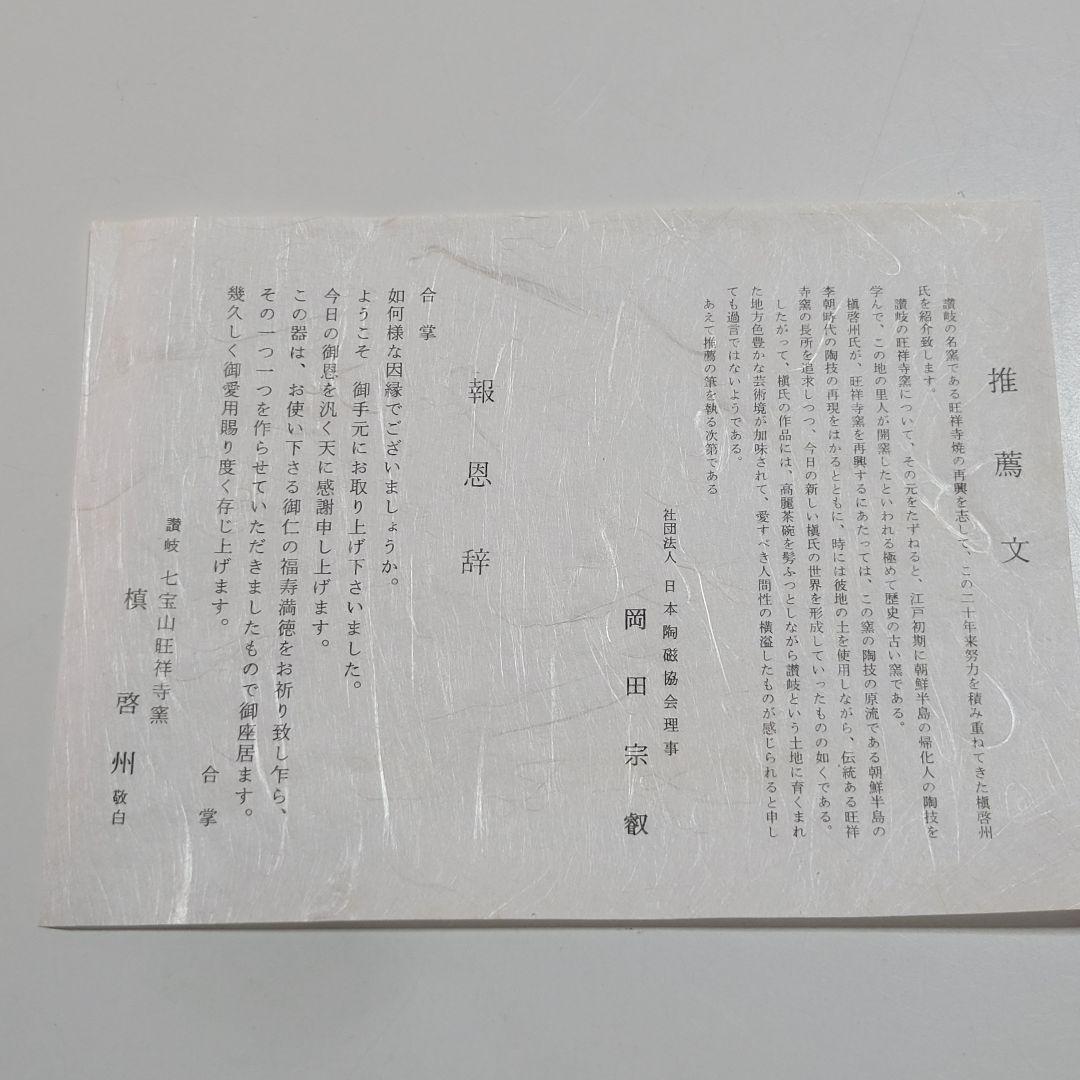 推薦文
讃岐の名窯である旺祥寺焼の再興を志して、この二十年来努力を積み重ねてきた槇啓州
氏を紹介致します。
讃岐の旺祥寺窯について、その元をたずねると、江戸初期に朝鮮半島の帰化人の陶技を
学んで、この地の里人が開窯したといわれる極めて歴史の古い窯である。
槇啓州氏が、旺祥寺窯を再興するにあたっては、この窯の陶技の原流である朝鮮半島の
李朝時代の陶技の再現をはかるとともに、時には彼地の土を使用しながら、伝統ある旺祥
寺窯の長所を追求しつつ、今日の新しい槇氏の世界を形成していったものの如くである。
したがって、槇氏の作品には、高麗茶碗を髣ふっとしながら讃岐という土地に育くまれ
た地方色豊かな芸術境が加味されて、愛すべき人間性の横溢したものが感じられると申し
ても過言ではないようである。
あえて推薦の筆を執る次第である
社団法人 日本陶磁協会理事
岡田宗叡
報恩辞
合掌
如何様な因縁でございましょうか。
ようこそ 御手元にお取り上げ下さいました。
今日の御恩を汎く天に感謝申し上げます。
この器は、お使い下さる御仁の福寿満徳をお祈り致し乍ら、
その一つ一つを作らせていただきましたもので御座居ます。
幾久しく御愛用賜り度く存じ上げます。
合掌
讃岐 七宝山旺祥寺窯
槙啓州 敬白